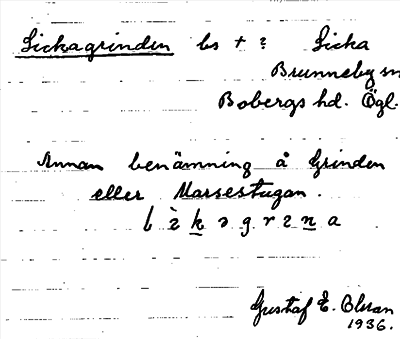 Sickagrinden bs + ? Sicka
Brunneby sn
Bobergs hd. Ögl.
Annan benämning å Grinden
eller Marsestugan.
Gustaf E. Olsson
1936.